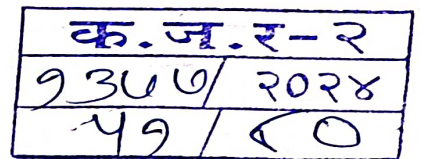 क.ज.र-२
१३७७/ २०२४
५१ / ८०